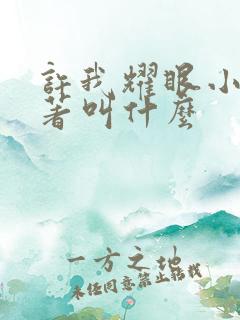 許我耀眼小
著叫什麼
一方之地
未经同意禁止搬我